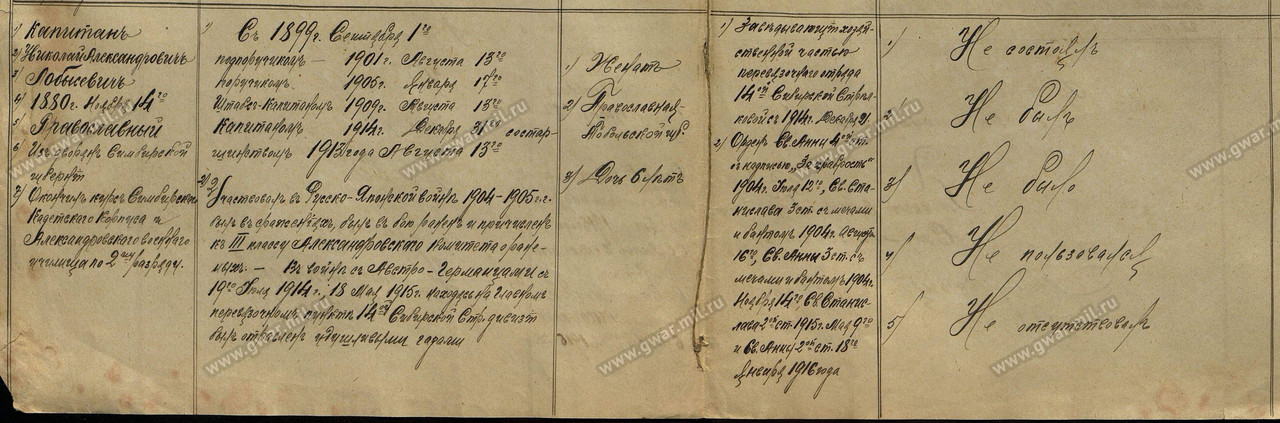 1) Капитанъ
2) Николай Александровичъ
3) Лобысевичъ
4) 1880 г. Ноября 14го
5) Православный
6) Изъ дворянъ Симбирской
губерніи
7) Окончилъ курсъ Симбирскаго
Кадетскаго Корпуса и
Александровского военнаго
училища по 2му разряду.
1) Съ 1899 г. Сентября 1го
подпоручикомъ — 1901 г. Августа 13го
поручикомъ 1905 г. Января 17го
Штабсъ-Капитаномъ 1909 г. Августа 13го
Капитаномъ 1914 г. Декабря 31го со стар-
шинствомъ 1913 года Августа 13го
2) Участвовалъ въ Русско-Японской войнѣ 1904-1905 г.г.
былъ въ сраженіяхъ, былъ въ бою раненъ и причисленъ
къ III классу Александровскаго Комитета о ране-
ныхъ. — Въ войнѣ съ Австро-Германцами съ
19го Іюля 1914 г. 18 Мая 1915 г. находясь на Главномъ
перевязочномъ пунктѣ 14ой Сибирской Стр. дивизіи
былъ отравленъ удушливыми газами
1) Женатъ
2) Православная
Тобольской
3) Дочь 6 лѣтъ
1) Завѣдывающій хозяй-
ственной частью
перевязочнаго отряда
14ой Сибирской Стрѣл-
ковой съ 1914 г. Декабря 21.
2) Орденъ Св. Анны 4ой ст.
съ надписью „За храбрость"
1904 г. Іюля 12го, Св. Ста-
нислава 3 ст. съ мечами
и бантомъ 1904 г. Августа
16го, Св. Анны 3 ст. съ
мечами и бантомъ 1904 г.
Ноября 14го, Св. Станис-
лава 2ой ст. 1915 г. Мая 9го
и Св. Анны 2ой ст. 18го
Января 1916 года
1) Не состоялъ
2) Не былъ
3) Не было
4) Не пользовался
5) Не отсутствовалъ
www.gwar.mil.ru